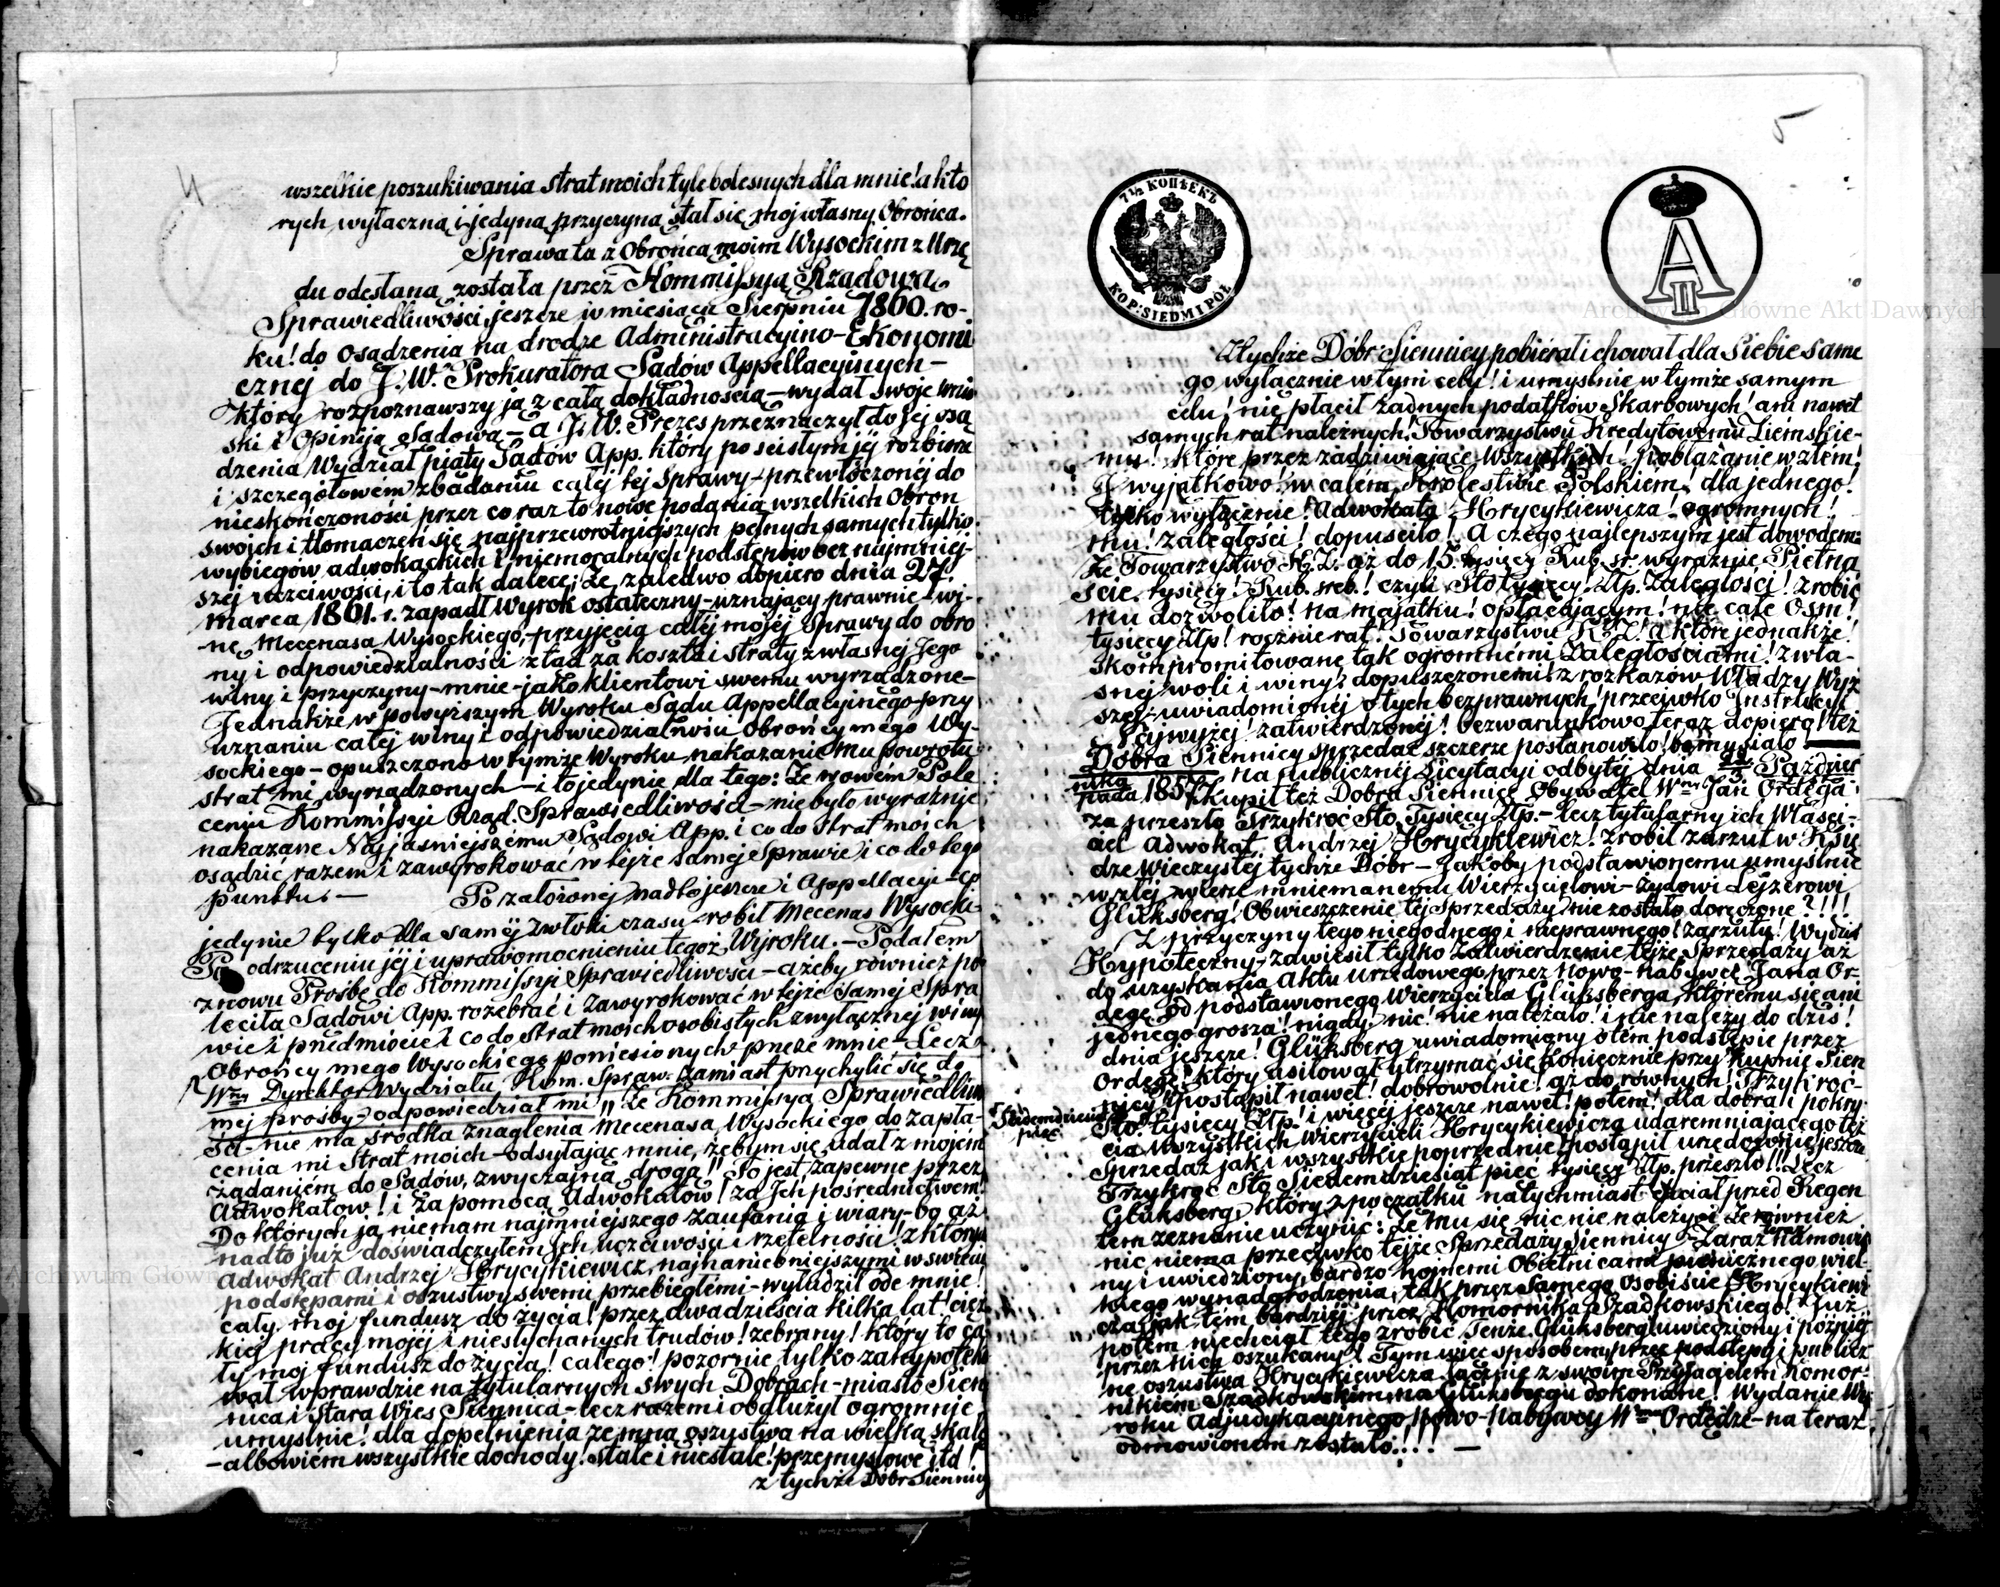 4
wszelkie poszukiwania strat moich tyle bolesnych dla mnie! a któ
rych wyłączną i jedyną przyczyną stał się mój własny Obrońca.
Sprawa ta z Obrońcą moim Wysockim z Urzę
du odesłaną została przez Kommissyą Rządową
Sprawiedliwości, jeszcze w miesiącu Sierpniu 1860. ro-
ku! do osądzenia na drodze Administracyino-Ekonomi
cznej do J.W. Prokuratora Sądów Appellacyinych-
który rozpoznawszy ją z całą dokładnością-wydał swoje wnio
ski i Opiniją Sądową-a J.W. Prezes przeznaczył do jej osą
dzenia Wydział piąty Sądów App. który po ścisłym jéj rozbiorze
i szczegółowém zbadaniu całéj téj Sprawy-przewłóczonej do
nieskończoności przez co raz to nowe podania wszelkich Obron
swoich i tłomaczeń się najprzewrotniejszych pełnych samych tylko
wybiegów adwokackich i niemoralnych podstępów bez najmniej-
széj uczciwości, i to tak dalece; że zaledwo dopiero dnia 27.
marca 1861. r. zapadł Wyrok ostateczny-uznający prawnie-wi-
nę Mecenasa Wysockiego,-przyjęcia całéj mojéj Sprawy do obro
ny i odpowiedzialności ztąd za koszta i straty z własnej Jego
winy i przyczyny-mnie-jako klientowi swemu wyrządzone-
Jednakże w powyższym Wyroku Sądu Appellacyinego-przy
uznaniu całej winy i odpowiedzialności Obrońcy mego Wy-
sockiego-opuszczono w tymże Wyroku-nakazanie mu powrotu
strat mi wyrządzonych-i to jedynie dla tego: że w owém Pole
ceniu Kommissyi Rząd. Sprawiedliwości-nie było wyraźnie
nakazane Najjaśniejszému Sądowi App. i co do Strat moich
osądzić razem i zawyrokować w tejże samej Sprawie i co do tego
punktu.— Po założonej nadto jeszcze i Appellacyi-co
jedynie tylko dla saméj zwłoki czasu-robił Mecenas Wysocki-
Po odrzuceniu jéj i uprawomocnieniu tegoż Wyroku.-Podałem
znowu Prośbę do Kommissyi Sprawiedliwości-ażeby również po
leciła Sądowi App. rozebrać i zawyrokować w tejże Samej Spra
wie i przedmiocie i co do strat moich osobistych z wyłącznej winy
Obrońcy mego Wysockiego poniesionych przeze mnie-Lecz
Wny Dyrektor Wydziału Kom. Spraw. zamiast przychylić się do
mej prośby-odpowiedział mi „że Kommissya Sprawiedliwo
ści-nie ma środka znaglenia Mecenasa Wysockiego do zapła-
cenia mi Strat moich-odsyłając mnie, żebym się udał z mojem
żądaniém do Sądów, zwyczajną drogą" To jest zapewne przez
Adwokatów! i za pomocą Adwokatów! za Ich pośrednictwem!
Do których ja nie mam najmniejszego zaufania i wiary-bo aż
nadto już doświadczyłem Ich uczciwości i rzetelności! z których
Adwokat Andrzej Hrycykiewicz, najhaniebniejszymi w świecie
podstępami i oszustwy swemi przebiegłemi-wyłudził ode mnie!
cały mój fundusz do życia! przez dwadzieścia kilka lat! cięż
kiej pracy mojéj i niesłychanych trudów! zebrany! który to ca
ły mój fundusz do życia! całego! pozornie tylko zahypoteko
wał wprawdzie na tytularnych swych Dobrach-miasto Sien
nica i Stara Wieś Siennica-lecz razem i obdłużył ogromnie
umyślnie! dla dopełnienia ze mną oszustwa na wielką skalę
-albowiem wszystkie dochody! stałe i niestałe! przemysłowe itd!
z tychże Dóbr Siennicy
5
7½ КОПѢЕКЪ
KOP: SIEDM I PÓŁ
A II
Z tychże Dóbr Siennicy pobiérał i chował dla Siebie same
go wyłącznie w tymi celu! i umyślnie w tymże samym
celu! nie płacił żadnych podatków Skarbowych! ani nawet
samych rat należnych! Towarzystwu Kredytowemu Ziemskie-
mu! które przez zadziwiające wszystkich-pobłażanie w złem!
wyjątkowo! w całem Królestwie Polskiem! dla jednego!
tylko wyłącznie! Adwokata Hrycykiewicza! ogromnych!
mu! zaległości! dopuściło! A czego najlepszym jest dowodem:
że Towarzystwo K.Z. aż do 15 tysięcy Rub. sr. wyraźnie Piętna
ście tysięcy! Rub. sreb.! czyli Sto tysięcy! Złp. Zaległości! zrobić
mu dozwoliło! na majątku! opłacającym! nie całe Osm!
tysięcy Złp! rocznie rat! Towarzystwu K.Z.! a które jednakże!
skompromitowane tak ogromnémi Zaległościami! z wła-
snej woli i winy; dopuszczonemi! z rozkazów Władzy Wyż
szej; uwiadomionej o tych bezprawnych! przeciwko Instrukcyi
Najwyżej! zatwierdzonej! bezwarunkowo teraz dopiero! też
Dobra Siennicy sprzedać szczerze postanowiło!
na publicznej Licytacyi odbytéj dnia Paździer
nika
piada 1857. kupił też Dobra Siennicę Obywatel Wny Jan Ordęga
za przeszło Trzykroć Sto Tysięcy Złp.-lecz tytularny ich Właści-
ciel Adwokat Andrzej Hrycykiewicz! zrobił zarzut w Księ
dze Wieczystéj tychże Dóbr-Jakoby podstawionemu umyślnie
w złej wierze mniemanemu Wierzycielowi-żydowi Lejzerowi
Glüksberg! Obwieszczenie téj Sprzedaży nie zostało doręczone?!!!!
Z przyczyny tego niegodnego i nieprawnego! zarzutu! Wydział
Hypoteczny-zawiesił tylko zatwierdzenie téjże Sprzedaży aż
do uzyskania Aktu urzędowego przez nowo-nabywcę Jana Or-
dęgę od podstawionego Wierzyciela Glüksberga, któremu się ani
jednego grosza! nigdy! nic! nie należało! i nie należy do dziś!
dnia jeszcze! Glüksberg uwiadomiony o tém podstępie przez
Ordęgę! który usiłował utrzymać się koniecznie przy kupnie Sien
nicy! postąpił nawet! dobrowolnie! aż do równych! Trzykroć-
Sto! tysięcy Złp! i więcej jeszcze nawet! potém! dla dobra i pokry
Siedemdziesiąt
pięć
cia wszystkich Wierzycieli Hrycykiewicza udaremniającego tej
Sprzedaż jak i wszystkie poprzednie! postąpił urzędownie jeszcze
Trzykroć Sto Siedemdziesiąt pięć tysięcy Złp. przeszło!!! Lecz
Glüksberg, który z początku natychmiast chciał przed Regen
tem zeznanie uczynić: że mu się nic nie należy i że również
nic nie ma przeciwko tejże Sprzedaży Siennicy Zaraz namowio
ny i uwiedziony bardzo hojnemi Obietnicami pieniężnego wiel-
kiego wynadgrodzenia, tak przez Samego osobiście Hrycykiewi
cza jak tém bardziéj przez Komornika Szadkowskiego! już
potém niechciał tego zrobić. Tenże Glüksberg! uwiedziony i później
przez nich oszukany! Tym więc sposobem, przez podstępy i publicz
ne oszustwa Hrycykiewicza łącznie z swoim Przyjacielem Komor-
nikiem Szadkowskim, na Glüksbergu dokonane! Wydanie Wy
roku Adjudykacyinego Nowo-Nabywcy Wmu Ordędze-na teraz
odmowionem zostało!!!! —